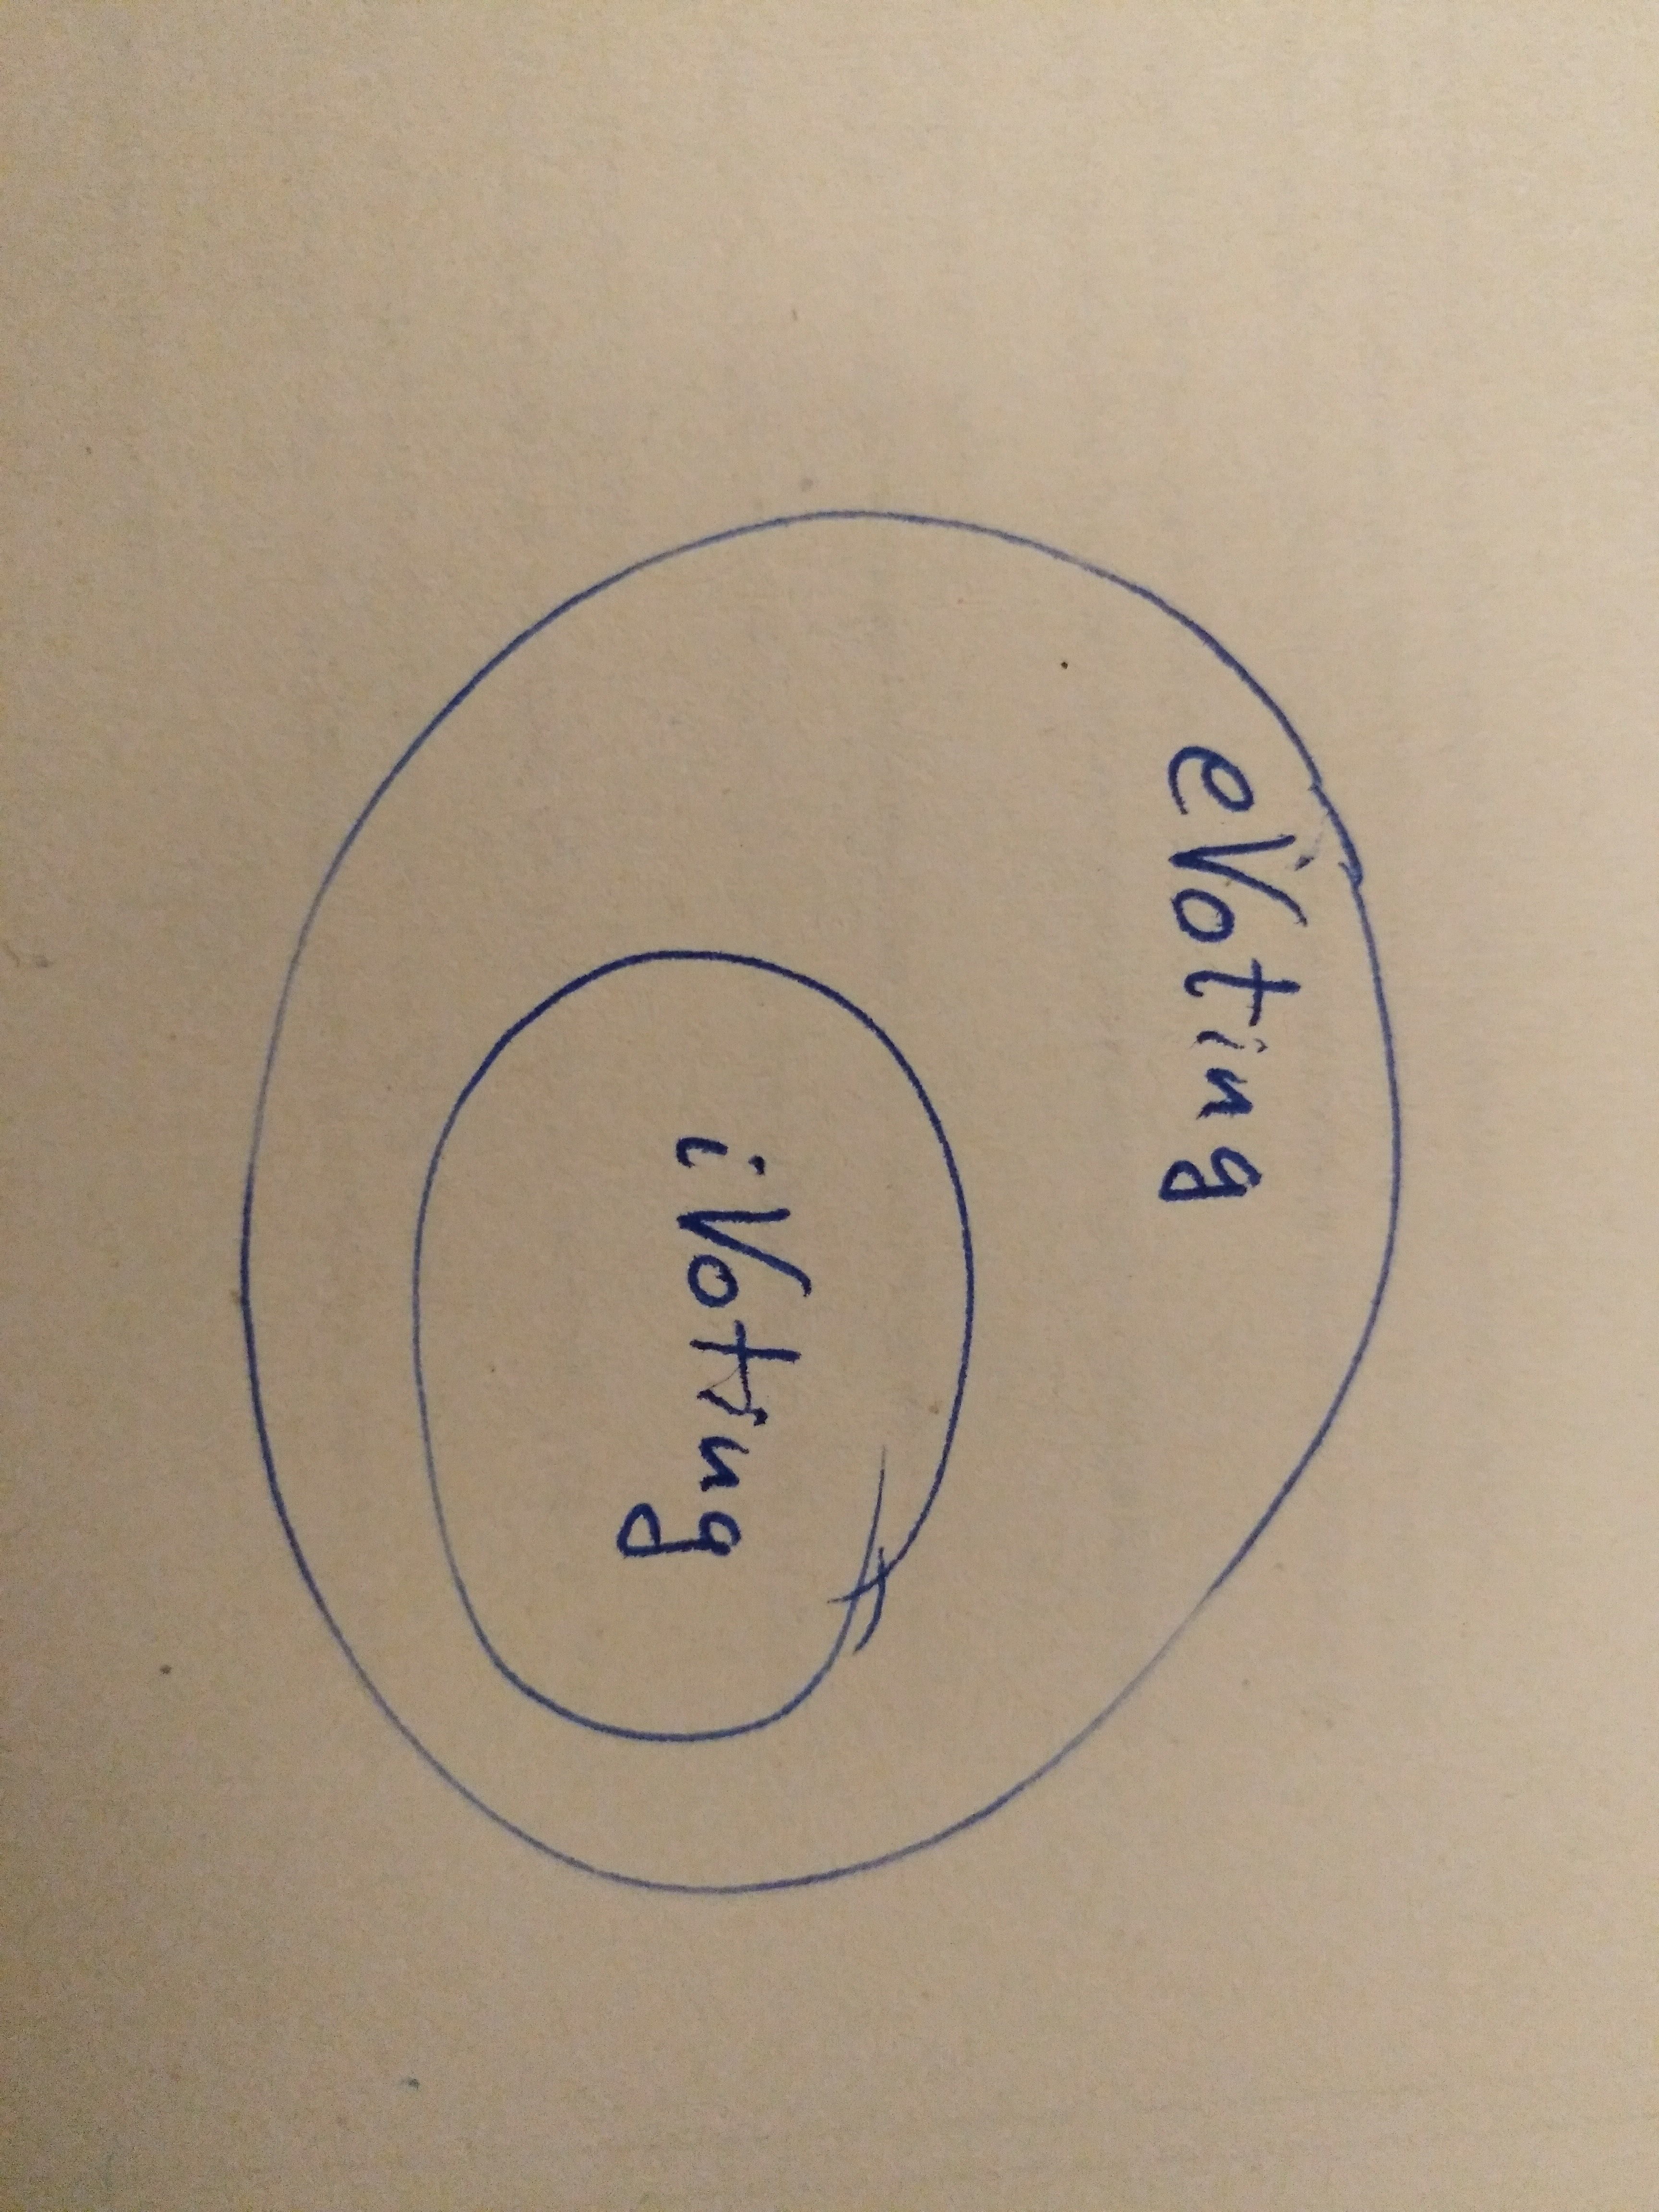 eVoting
iVoting